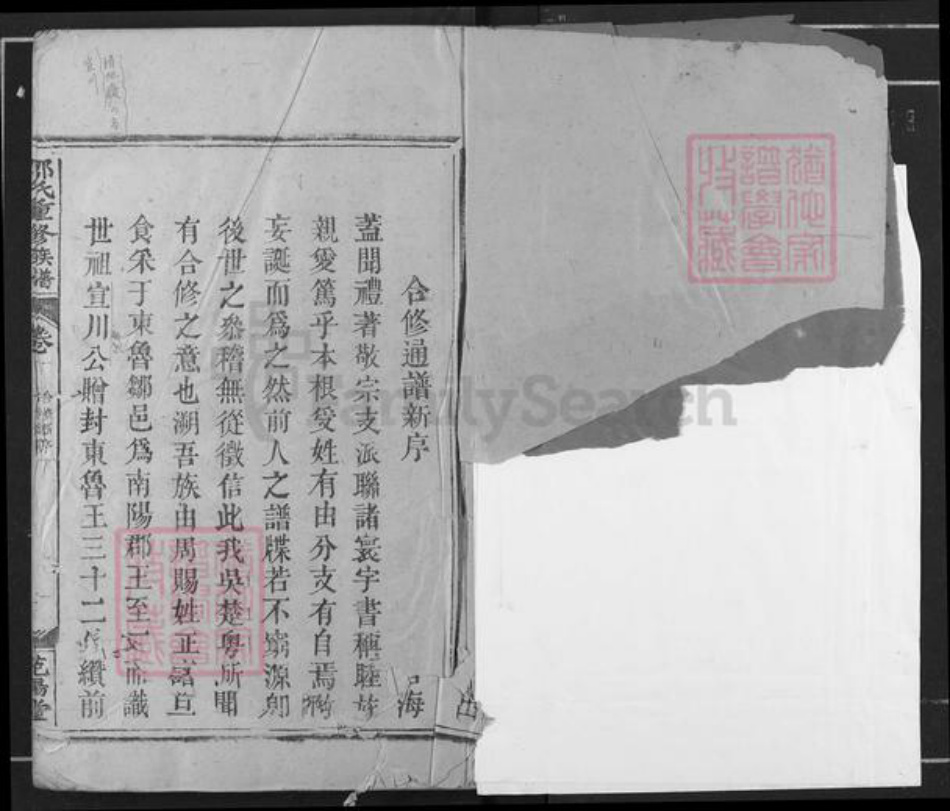 合修通譜新序
蓋聞禮著敬宗支派聯諸寰宇書稱睦族
親愛篤乎本根受姓有由分支有自焉
妄誕而為之然前人之譜牒若不窮源則
後世之叅稽無從徵信此我吳楚粵所聞
有合修之意也溯吾族由周賜姓正諸
食采于東魯鄒邑為南陽郡王至
世祖宣川公贈封東魯王三十二纘前
海
氏重修族譜
卷
堂
FamilySearch
譜學會
收藏